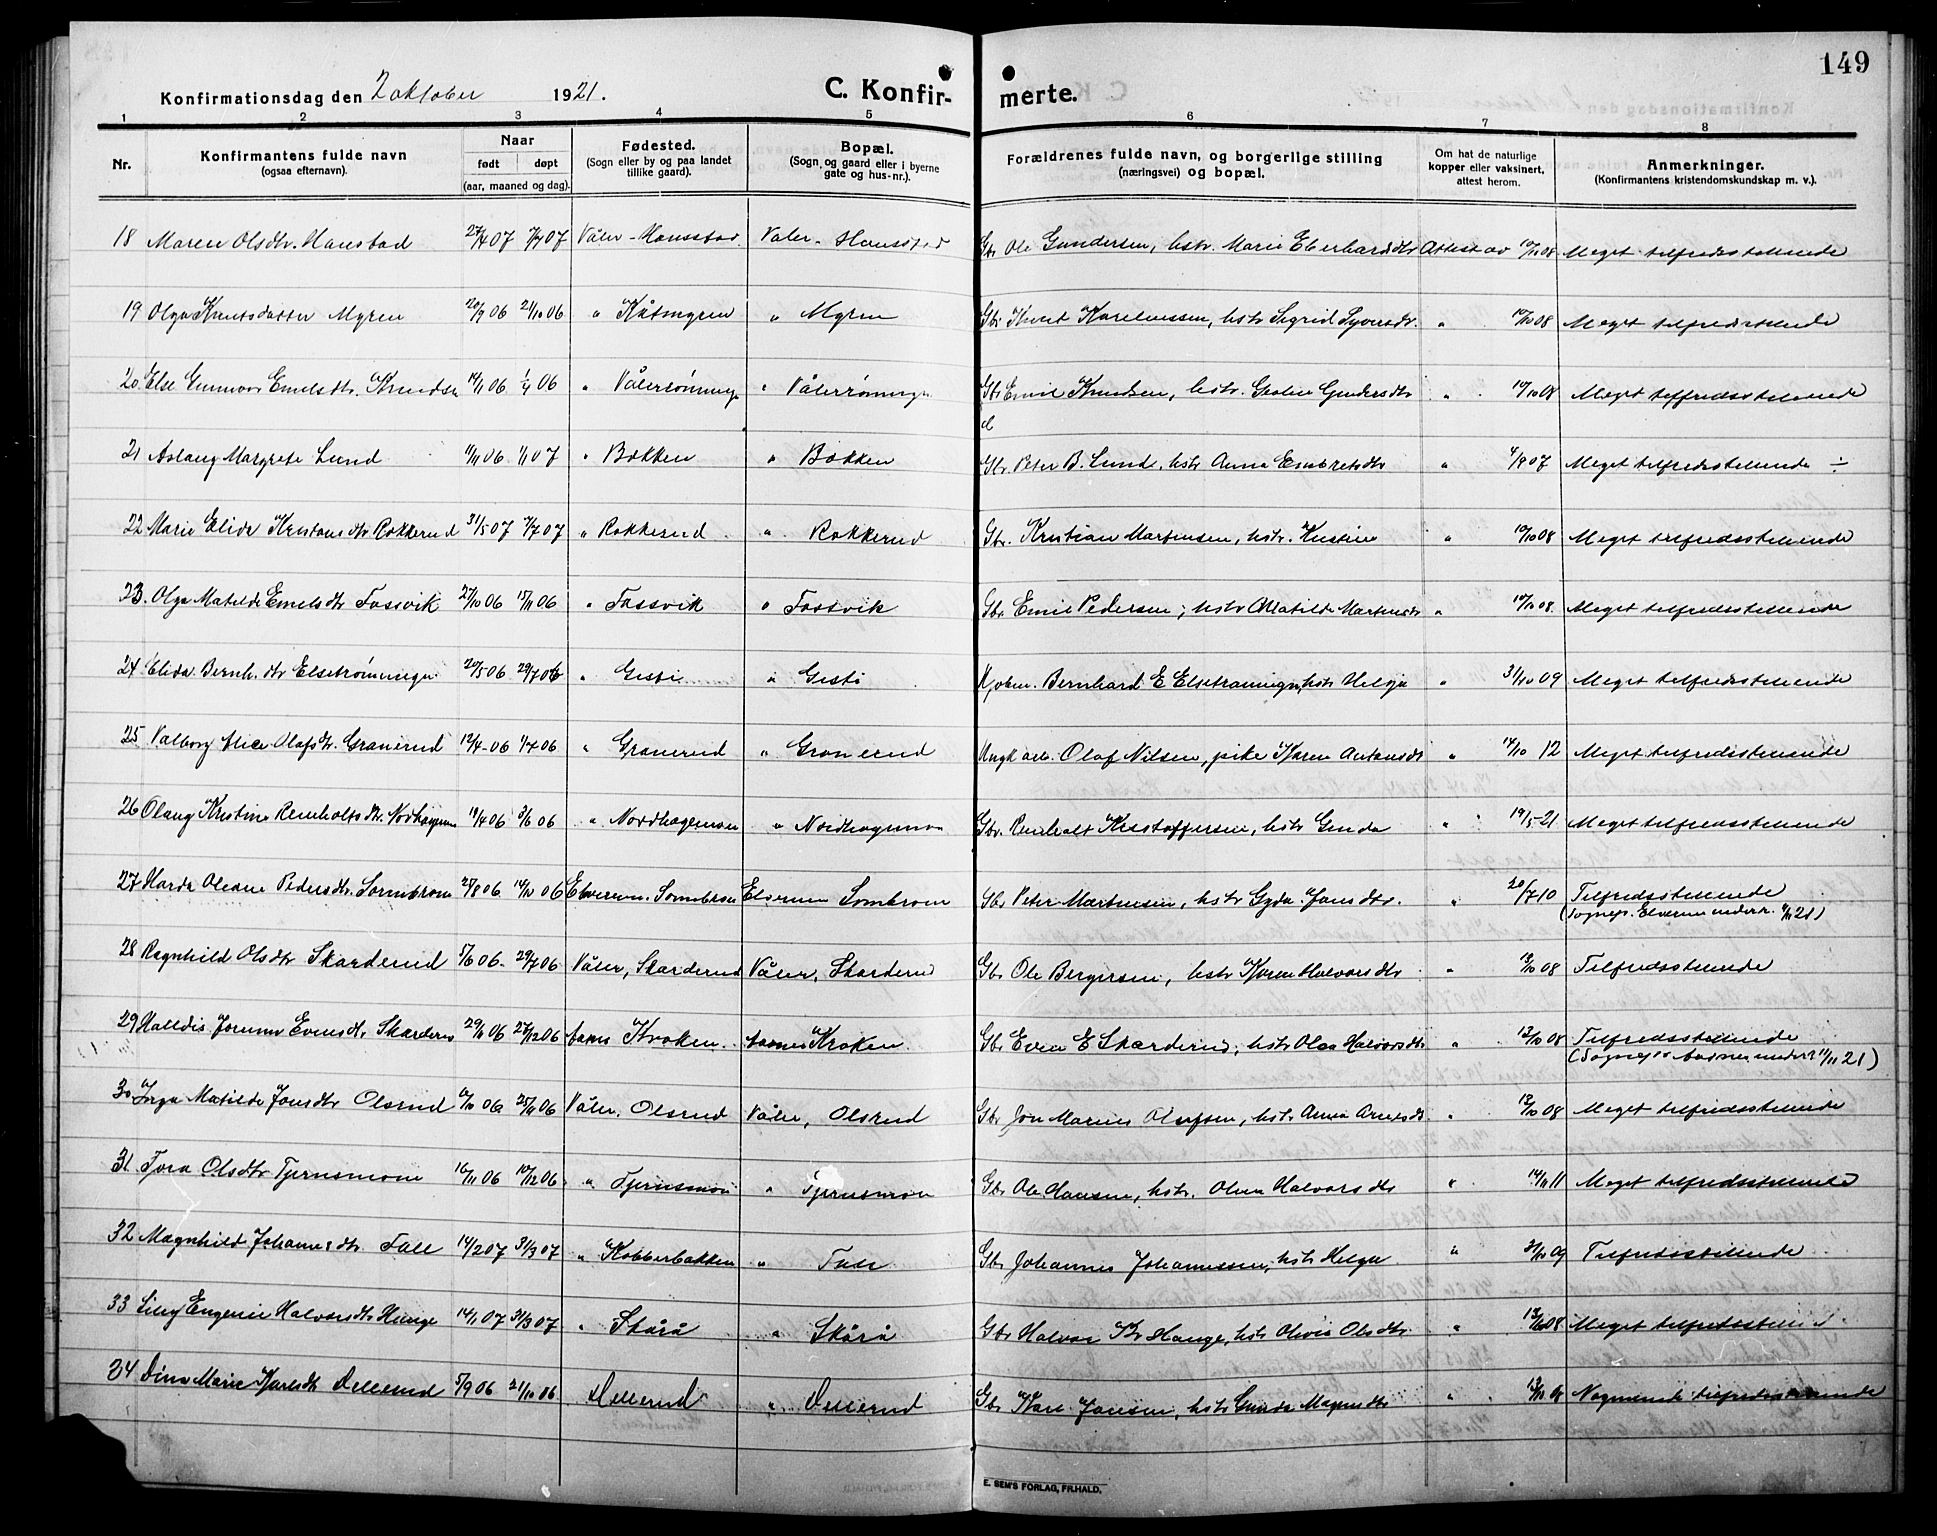 149
Konfirmationsdag den 2 oktober 1921. C. Konfir-merte.
1 2 3 4 5 6 7 8
Nr. Konfirmantens fulde navn (ogsaa efternavn). Naar født døpt (aar, maaned og dag). Fødested. (Sogn eller by og paa landet tillike gaard). Bopæl. (Sogn og gaard eller i byerne gate og hus-nr.). Forældrenes fulde navn, og borgerlige stilling (næringsvei) og bopæl. Om hat de naturlige kopper eller vaksinert, attest herom. Anmerkninger. (Konfirmantens kristendomskundskap m. v.).
18 Maren Olsdtr. Hanstad 27/4 07 7/7 07 Våler - Hansstad Våler - Hansstad Gbr. Ole Gundersen, hstr. Marie Eberhardsdtr Attest av 10/10 08 Meget tilfredsstillende
19 Olga Knutsdatter Myren 20/9 06 21/10 06 " Kåtmyren " Myren Gbr Knut Kareliussen, hstr Sigrid Syversdr. " 10/10 08 Meget tilfredsstillende
20 Else Gunnvor Emilsdtr. Knudsen 14/1 06 1/4 06 " Vålerrønning " Vålerrønning Gbr Emil Knudsen, hstr. Gundersdtr " 10/10 08 Meget tilfredsstillende
21 Aslaug Margrete Lund 11/11 06 1/1 07 " Bakken " Bakken Gbr. Peter B. Lund, hstr Anna Embretsdtr " 4/9 07 Meget tilfredsstillende ÷
22 Marie Elida Kristiansdtr Rokkerud 31/5 07 7/7 07 " Rokkerud " Rokkerud Gbr. Kristian Martinsen, hstr. Kristine " 10/10 08 Meget tilfredsstillende
23. Olga Matilde Emilsdtr Fossvik 27/10 06 15/11 06 " Fossvik " Fossvik Gbr Emil Pedersen, hstr Matilde Martinsdtr " 10/10 08. Meget tilfredsstillende
24 Elida Bernh.dtr Elsetrønningen 20/5 06 29/7 06 " Gesti " Gesti Kjøbm. Bernhard E Elsetrønningen, hstr Helga " 31/10 09 Meget tilfredsstillende
25 Valborg Alice Olafsdtr. Granerud 12/4 06 1/7 06 " Granerud " Granerud Ungk arb. Olaf Nilsen, pike Karen Antonsdtr " 14/10 12 Meget tilfredsstillende
26 Olaug Kristine Reinholtsdtr. Nordhagenmoen 19/4 06 3/6 06 " Nordhagenmoen " Nordhagenmoen Gbr. Reinholt Kristoffersen, hstr Ginda " 19/5 21 Meget tilfredsstillende
27 Harda Oleane Pedersdtr. Sormbroen 25/8 06 14/10 06 Elverum. Sormbroen Elverum Sormbroen Gbr Peter Martinsen, hstr Gyda Jonsdtr. " 20/7 10 Tilfredsstillende
(Sognepr. Elverum underr. 21)
28 Ragnhild Olsdtr Skarderud 5/6 06 29/7 06 Våler, Skarderud Våler, Skarderud Gbr Ole Bergersen, hstr Karen Halvorsdtr " 13/10 08 Tilfredsstillende
29 Halldis Jorunn Evensdtr Skarderud 29/11 06 27/12 06 Aasnes Kroken Aasnes Kroken Gbr Even E Skarderud, hstr Olea Halvorsdtr " 13/10 08 Tilfredsstillende
(Sognepr Aasnes underr 11/11 21)
30 Inga Matilde Jonsdtr Olsrud 06 25/11 06 Våler, Olsrud Våler, Olsrud Gbr Jon Marius Olufsen, hstr Anna Arnesdtr " 13/10 08 Meget tilfredsstillende
31 Tora Olsdtr Tjernsmoen 16/11 06 10/12 06 " Tjernsmoen " Tjernsmoen Gbr Ole Hansen, hstr. Olava Halvorsdtr " 14/11 11 Meget tilfredsstillende
32 Magnhild Johannesdtr. Tall 14/2 07 31/3 07 " Kobberbakken " Tall Gbr Johannes Johannessen, hstr Helga " 31/10 09 Tilfredsstillende
33 Lilly Eugenie Halvorsdtr Hauge 14/1 07 31/3 07 " Skårå " Skårå Gbr Halvor Kr Hauge, hstr Olivia Olsdtr " 13/10 08 Meget tilfredsstillende
34 Dina Marie Karlsdtr Dellerud 5/9 06 21/10 06 " Dellerud " Dellerud Gbr Karl Jansen, hstr Gunda Magnusdtr " 13/10 08 Nogenlunde tilfredsstillende
E. SEM'S FORLAG, FR.HALD.